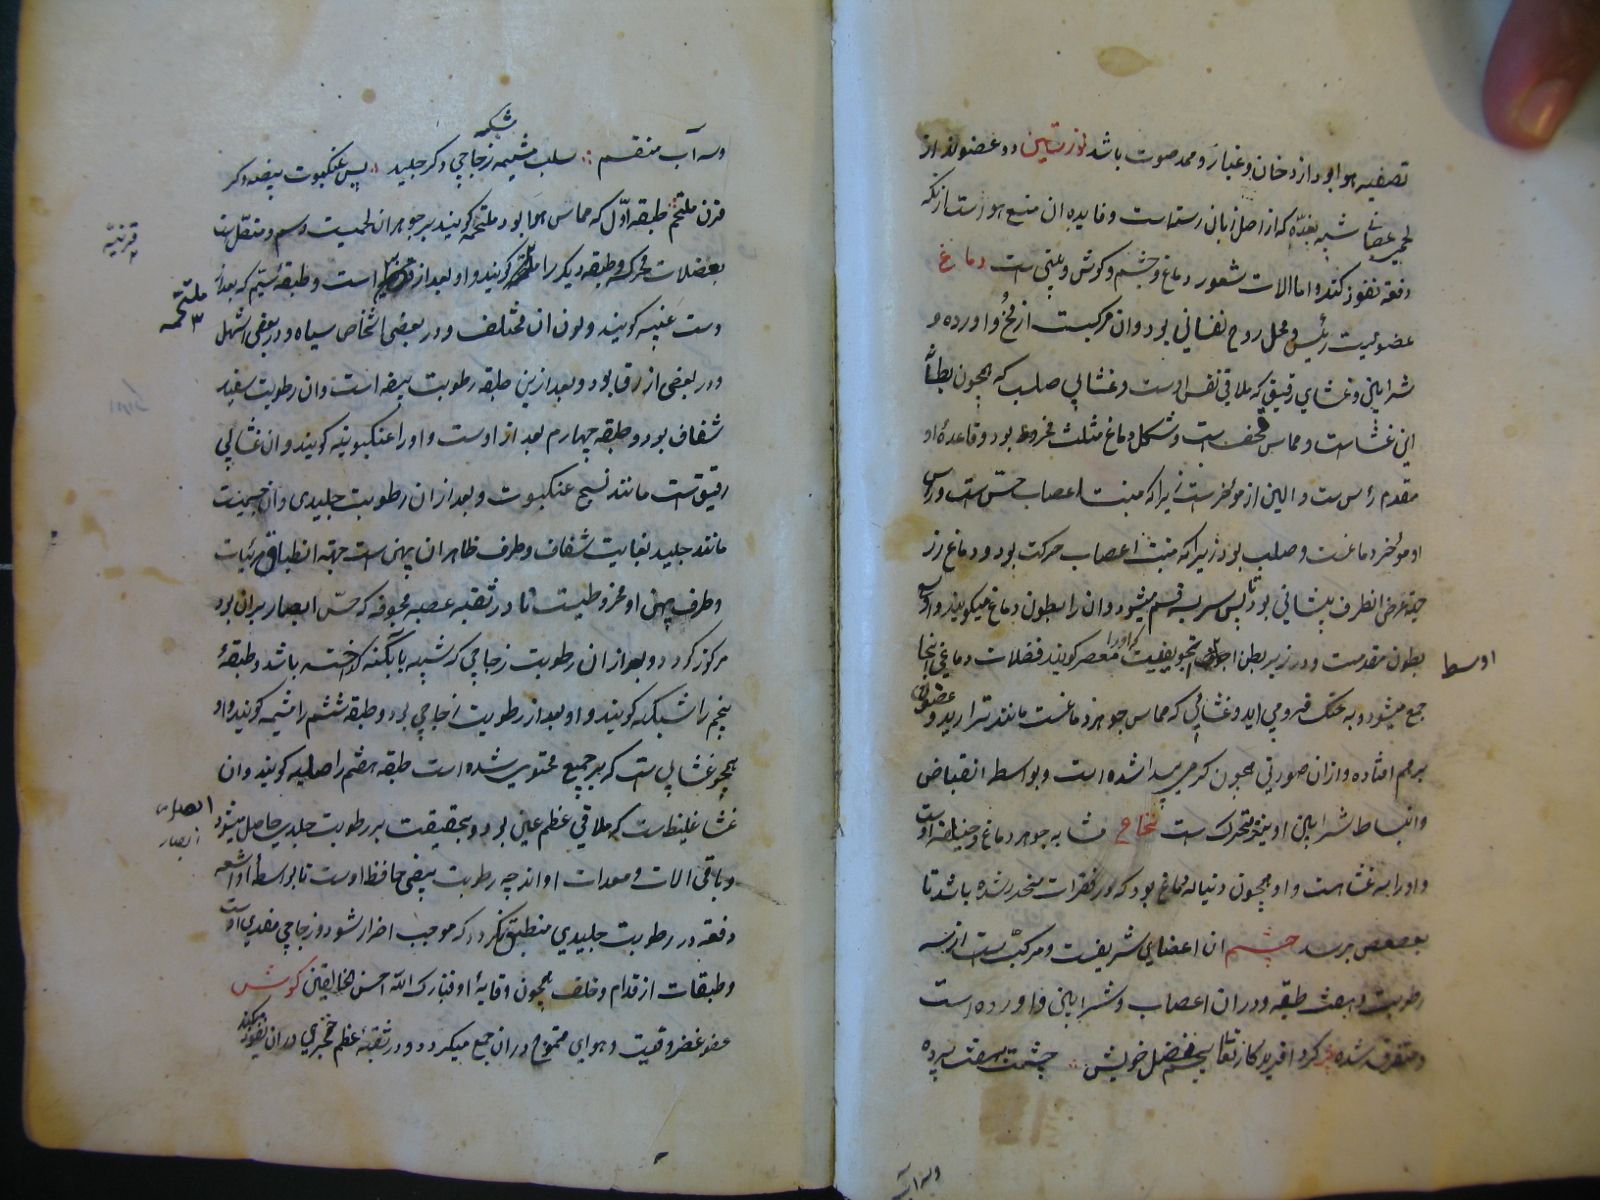 تصفیه هوا بود از دخان و غبار و ممد صوت باشد لوزتین دو عضواند از
لحمی عصبانی شبیه بغدّه که از اصل زبان رستهاست و فایده ان منع هواست از انکه
دفعة نفوذ کند و اما الات شعور دماغ و چشم و کوش و بینی است دماغ
عضویست رئیس و محل روح نفسانی بود و ان مرکبست از مخ و اورده و
شرایین و غشای رقیق که ملاقی نفس اوست و غشایی صلب که همچون بطانه
این غشاست و مماس قحف است و شکل دماغ مثلث مخروط بود و قاعده او
مقدم راس ست و الین از موخرست زیرا که منبت اعصاب حس است و راس
او موخر دماغست و صلب بود زیرا که منبت اعصاب حرکت بود و دماغ را از
جهة عرض از طرف پیشانی بود تا پس سر بسه قسم میشود و ان را بطون دماغ میکویند و اوسع
بطون مقدمست و در زیر بطن تجویفیست که او را معصر کویند فضلات دماغی انجا
اوسط
جمع میشود و به حنک فرو می اید و غشایی که مماس جوهر دماغست مانند تر اریده و غضون
برهم افتاده و ازان صورتی همچون کرمی پیدا شده است و بواسطه انقباض
و انبساط شرایین او نیز متحرک است نخاع مشابه جوهر دماغ و خلیفه اوست
و او را سه غشاست و او همچون دنباله دماغ بود که در فقرات منحدر شده باشد تا
بعصعص برسد چشم ان اعضای شریفست و مرکبست از سه
رطوبت و هفت طبقه و دران اعصاب و شرایین و اورده است
و متفرق شده کرد افریدکار تعالی بفضل خویش چشمت بهفت پرده
وسه اب
وسه آب منقسم صلب مشیمه شبکه زجاجی دکر جلید پس عنکبوت بیضه دکر
قرن ملتحم طبقه اوّل که مماس هوا بود ملتحمه کویند بر جوهر ان لحمیت و سم و متصلست
قرنیه
بعضلات محرکه و طبقه دیکر را کویند و او بعد از است و طبقه سیّم که بعد از
ملتحمه
وست عنبیه کویند و لون ان مختلف و در بعضی اشخاص سیاه و در بعضی اشهل
و در بعضی ازرق بود و بعد ازین طبقه رطوبت بیضه است و ان رطوبت سفید
شفاف بود و طبقه چهارم بعد از اوست و او را عنکبوتیه کویند و ان غشایی
رقیق است مانند نسج عنکبوت و بعد از ان رطوبت جلیدی و ان جسمیست
مانند جلید بغایت شفاف و طرف ظاهر ان پهن است جهة انطباق مرئیات
و طرف پهن او مخروطیست تا در ثقبه عصبه مجوفه که حس ابصار بران بود
مرکوز کردد و بعد از ان رطوبت زجاجی که شبیه بابکینه کداخته باشد و طبقهٔ
پنجم را شبکیه کویند و او بعد از رطوبت زجاجی بود و طبقه ششم را مشیمه کویند و او
همچو غشایی است که بر جمیع محتوی شده است طبقه هفتم را صلبیه کویند و ان
غشا غلیظست که ملاقی عظم عین بود و بحقیقت بر رطوبت جلیدی حاصل میشود
ابصار
و باقی الات و معدات اواند چه رطوبت بیضی حافظ اوست تا بواسطه او اشعه
دفعه در رطوبت جلیدی منطبق نکردد که موجب اضرار شود و زجاجی مغذی اوست
و طبقات از قدام و خلف همچون وقایهٔ او فتبارک الله احسن الخالقین کوش
عضو غضروفیست و هوای متموج دران جمع میکردد و در ثقبهٔ عظم حجری دران نفوذ میکند